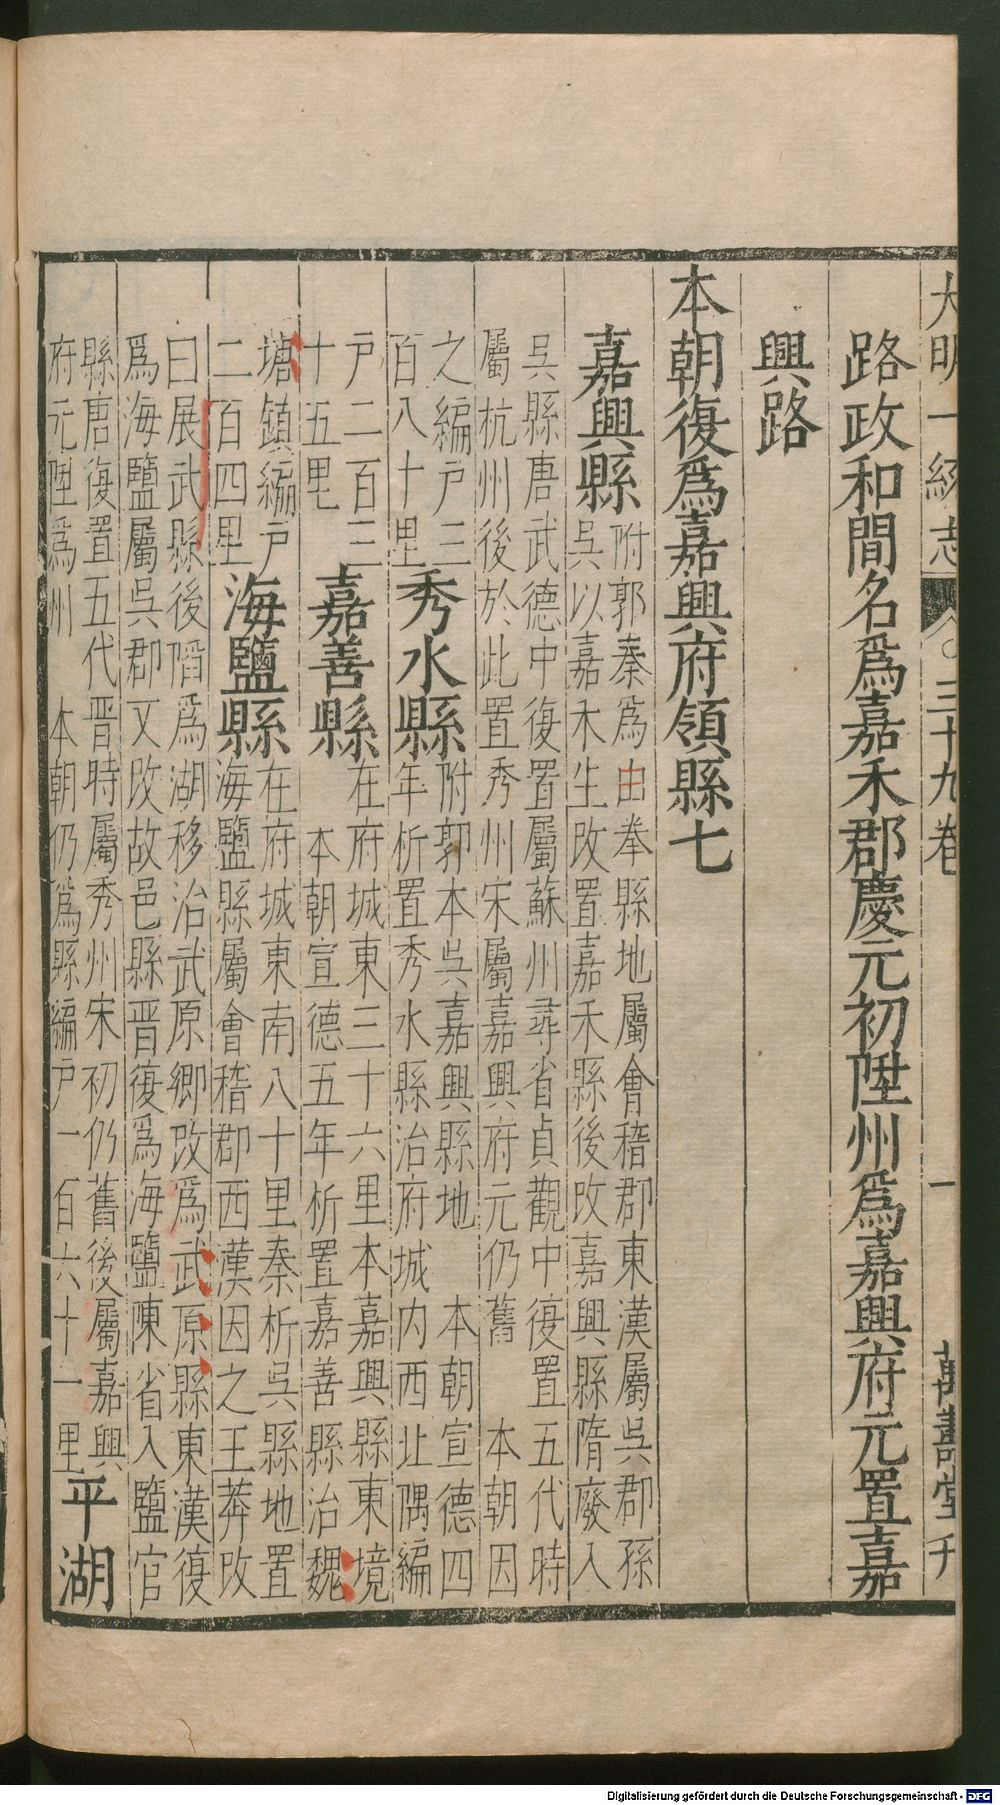 大明一統志
三十九卷
一
萬壽堂刊
路政和間名爲嘉禾郡慶元初陞州爲嘉興府元置嘉
興路
本朝復爲嘉興府領縣七
嘉興縣
附郭秦爲由拳縣地屬會稽郡東漢屬吳郡孫
吳以嘉禾生改置嘉禾縣後改嘉興縣隋廢入
吳縣唐武德中復置屬蘇州尋省貞觀中復置五代時
屬杭州後於此置秀州宋屬嘉興府元仍舊 本朝因
之編戶三
百八十里
秀水縣
附郭本吳嘉興縣地 本朝宣德四
年析置秀水縣治府城内西北隅編
戶二百三
十五里
嘉善縣
在府城東三十六里本嘉興縣東境
本朝宣德五年析置嘉善縣治魏
塘鎮編戶
二百四里
海鹽縣
在府城東南八十里秦析吳縣地置
海鹽縣屬會稽郡西漢因之王莽改
曰展武縣後䧟爲湖移治武原鄉改爲武原縣東漢復
爲海鹽屬吳郡又改故邑縣晋復爲海鹽陳省入鹽官
縣唐復置五代晋時屬秀州宋初仍舊後屬嘉興
府元陞爲州 本朝仍爲縣編戶一百六十一里
平湖
Digitalisierung gefördert durch die Deutsche Forschungsgemeinschaft - DFG